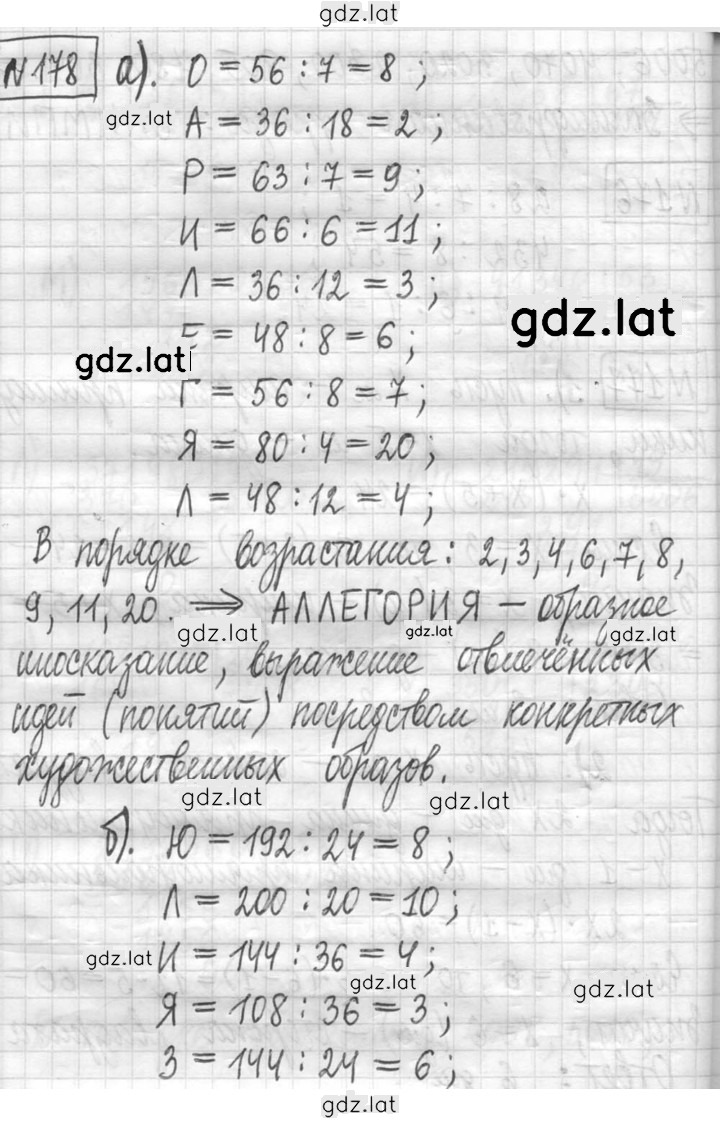 gdz.lat
N178 а). О = 56 : 7 = 8 ;
gdz.lat А = 36 : 18 = 2 ;
Р = 63 : 7 = 9 ;
И = 66 : 6 = 11 ;
Л = 36 : 12 = 3 ;
gdz.lat
Е = 48 : 8 = 6 ;
gdz.lat
Г = 56 : 8 = 7 ;
Я = 80 : 4 = 20 ;
Л = 48 : 12 = 4 ;
В порядке возрастания: 2, 3, 4, 6, 7, 8,
9, 11, 20. ⟹ АЛЛЕГОРИЯ – образное
gdz.lat gdz.lat gdz.lat
иносказание, выражение отвлечённых
идей (понятий) посредством конкретных
художественных образов.
gdz.lat gdz.lat
б). Ю = 192 : 24 = 8 ;
Л = 200 : 20 = 10 ;
gdz.lat И = 144 : 36 = 4 ;
gdz.lat gdz.lat
Я = 108 : 36 = 3 ;
З = 144 : 24 = 6 ;
gdz.lat